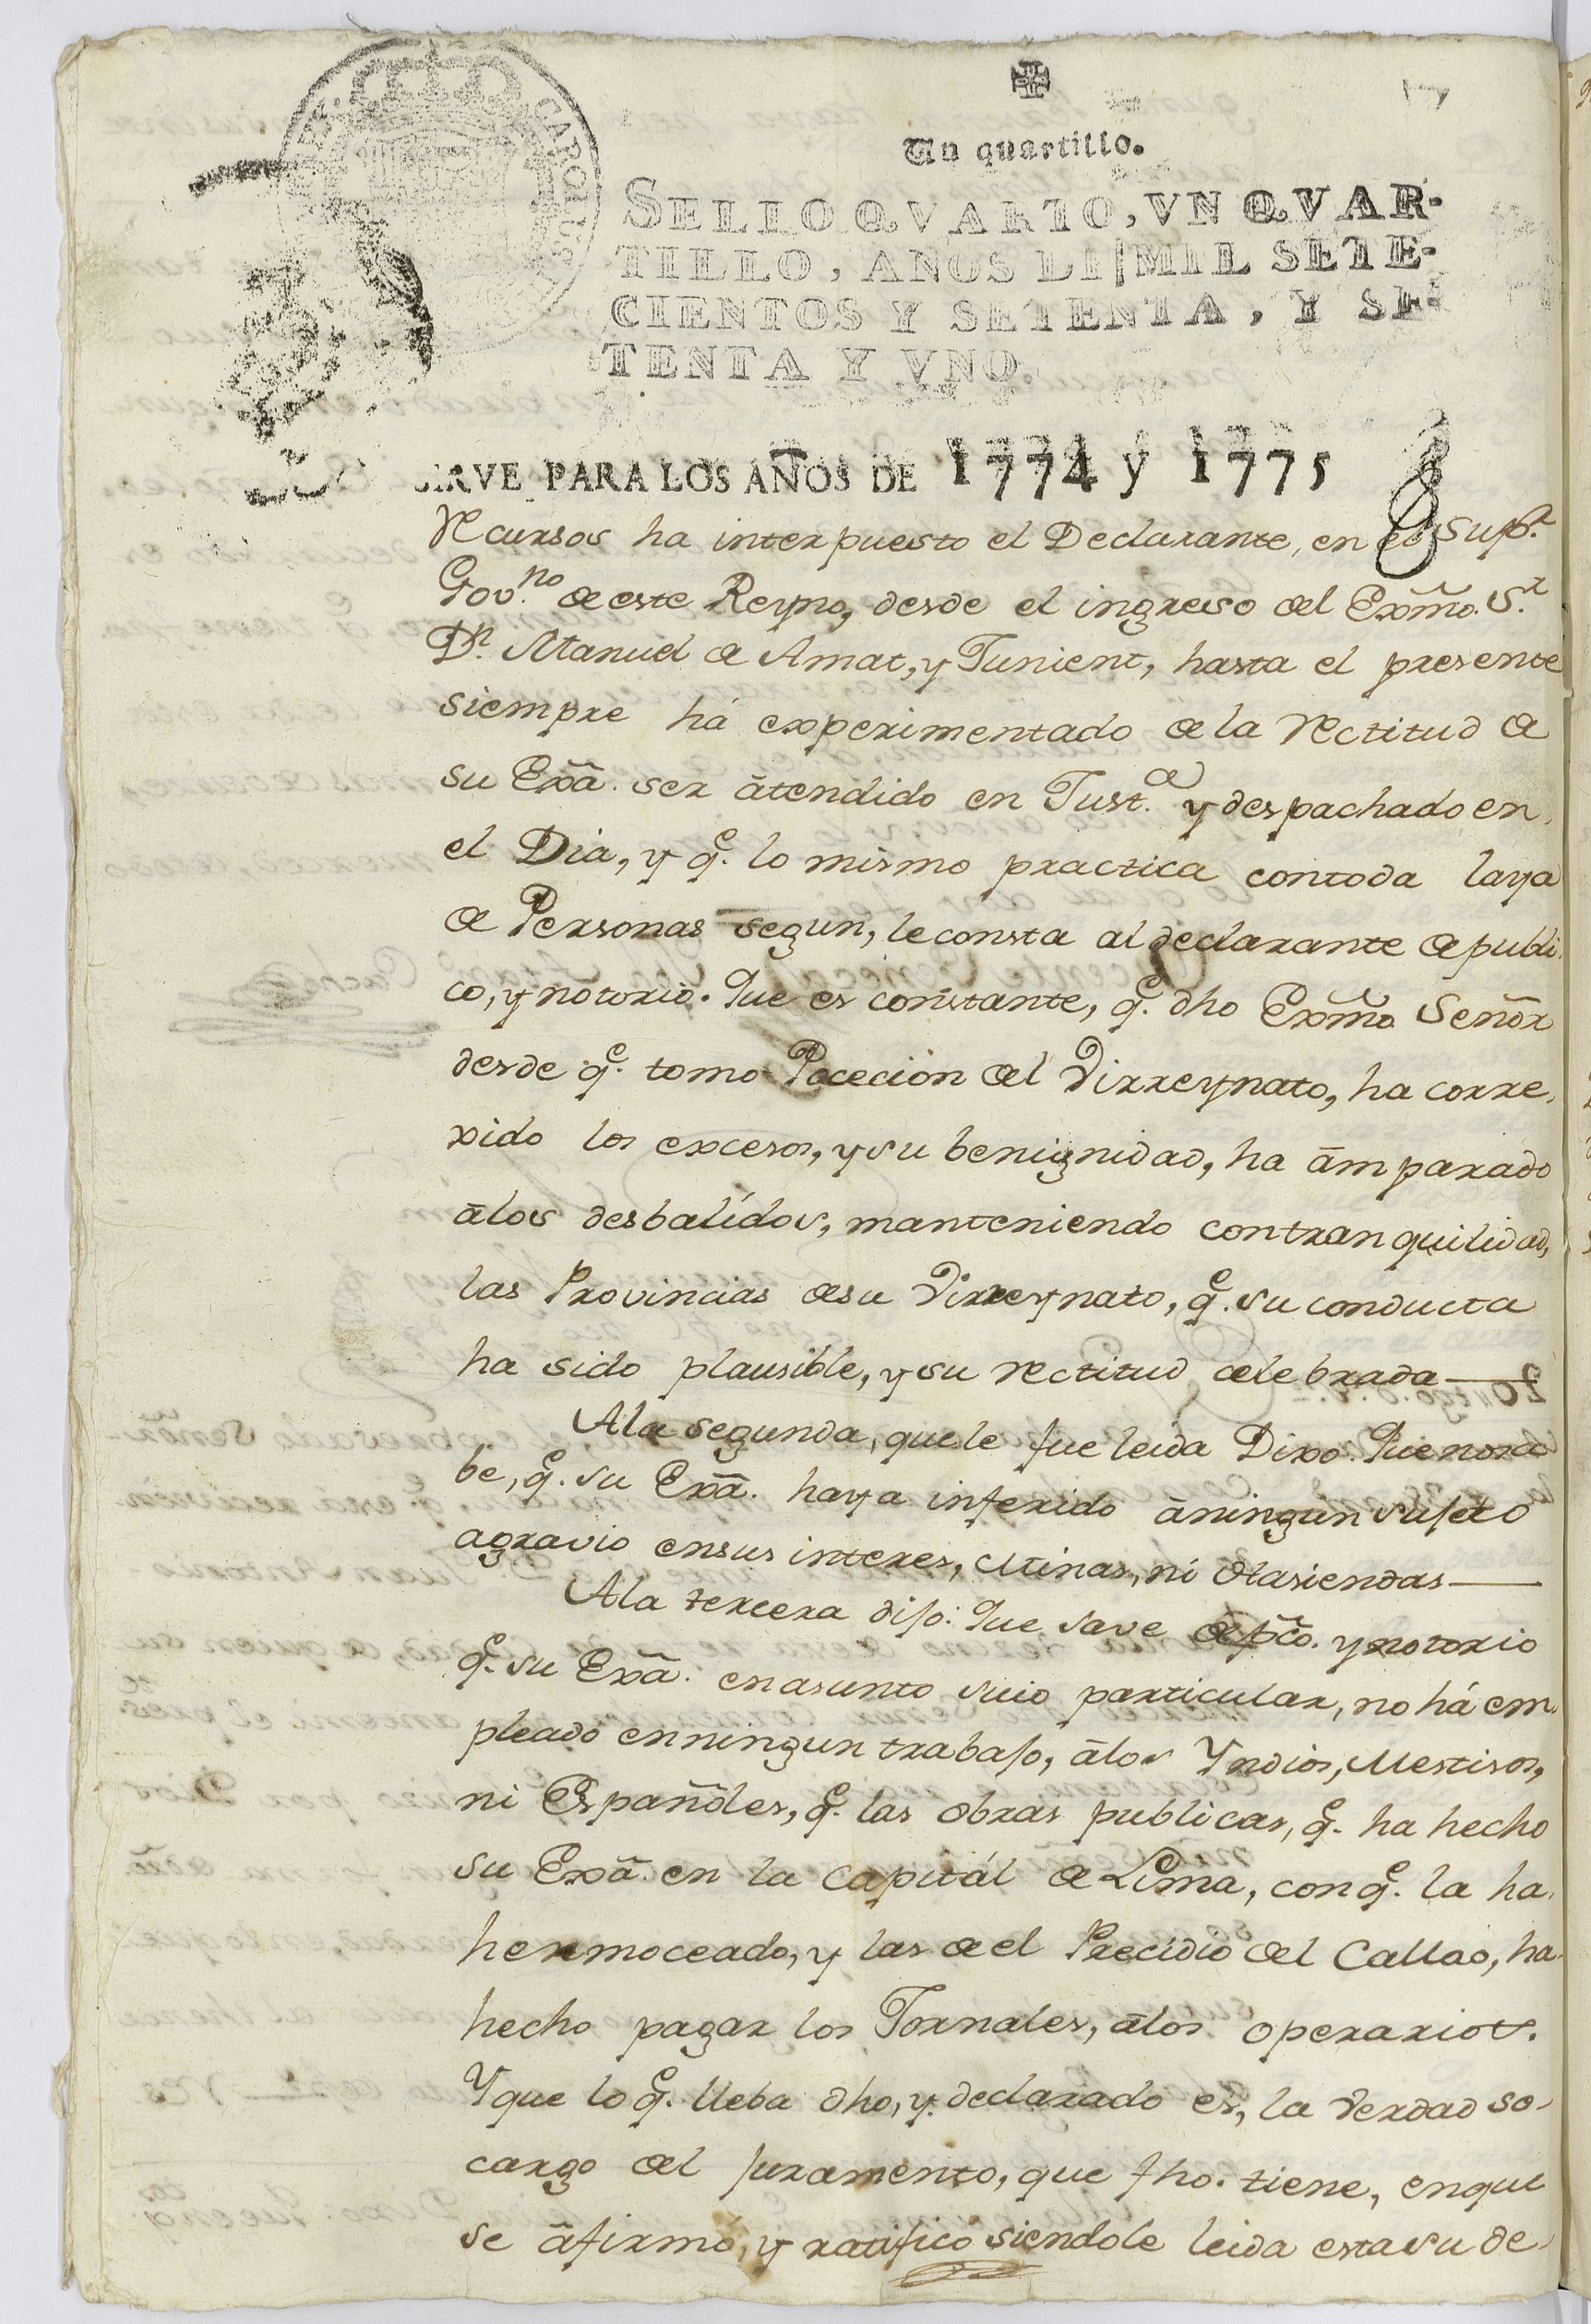 CAROLUS
Un quartillo.
SELLO QVARTO, VN QVAR-
TILLO, AÑOS DE MIL SETE-
CIENTOS Y SETENTA, Y SE-
TENTA Y VNO.
IRVE PARA LOS AÑOS DE 1774 y 1775
Recursos ha interpuesto el Declarante, en el Sup.r
Gov.no de este Reyno, desde el ingreso del Exmõ. S.r
D.n Manuel de Amat, y Junient, hasta el presente
siempre há experimentado de la Rectitud de
su Exã. ser ãtendido en Just.a y despachado en
el Dia, y q.e lo mismo practica contoda laya
de Personas segun, leconsta al declarante depubli
co, y notorio. Que es constante, q.e dho Exmõ Señor
desde q.e tomo Poceción del Virreynato, ha corre,
xido los excesos, y su benignidad, ha ãmparado
ãlos desbalídos, manteniendo contranquilidad,
las Provincias desu Virreynato, q.e su conducta
ha sido plausible, y su rectitud celebrada —
Ala segunda, quele fue leida Dixo. Que nosa
be, q.e su Exã. haya inferido ãningun sujeto
agravio ensus interes, Minas, ni Hasiendas —
Ala tercera dijo: Que save de pc̃o. y notorio
q.e su Exã. enasunto suio particular, no há em
pleado enningun trabajo, ãlos Yndios, Mestisos,
ni Españoles, q.e las obras publicas, q.e ha hecho
su Exã. en la Capitál de Lima, conq.e la ha
hermoceado, y las de el Precidio del Callao, ha
hecho pagar los Jornales, ãlos operarios.
Y que lo q.e lleba dho, y declarado es, la verdad so-
cargo del juramento, que fho. tiene, enque
se ãfirmó, y ratificó siendole leida esta su de